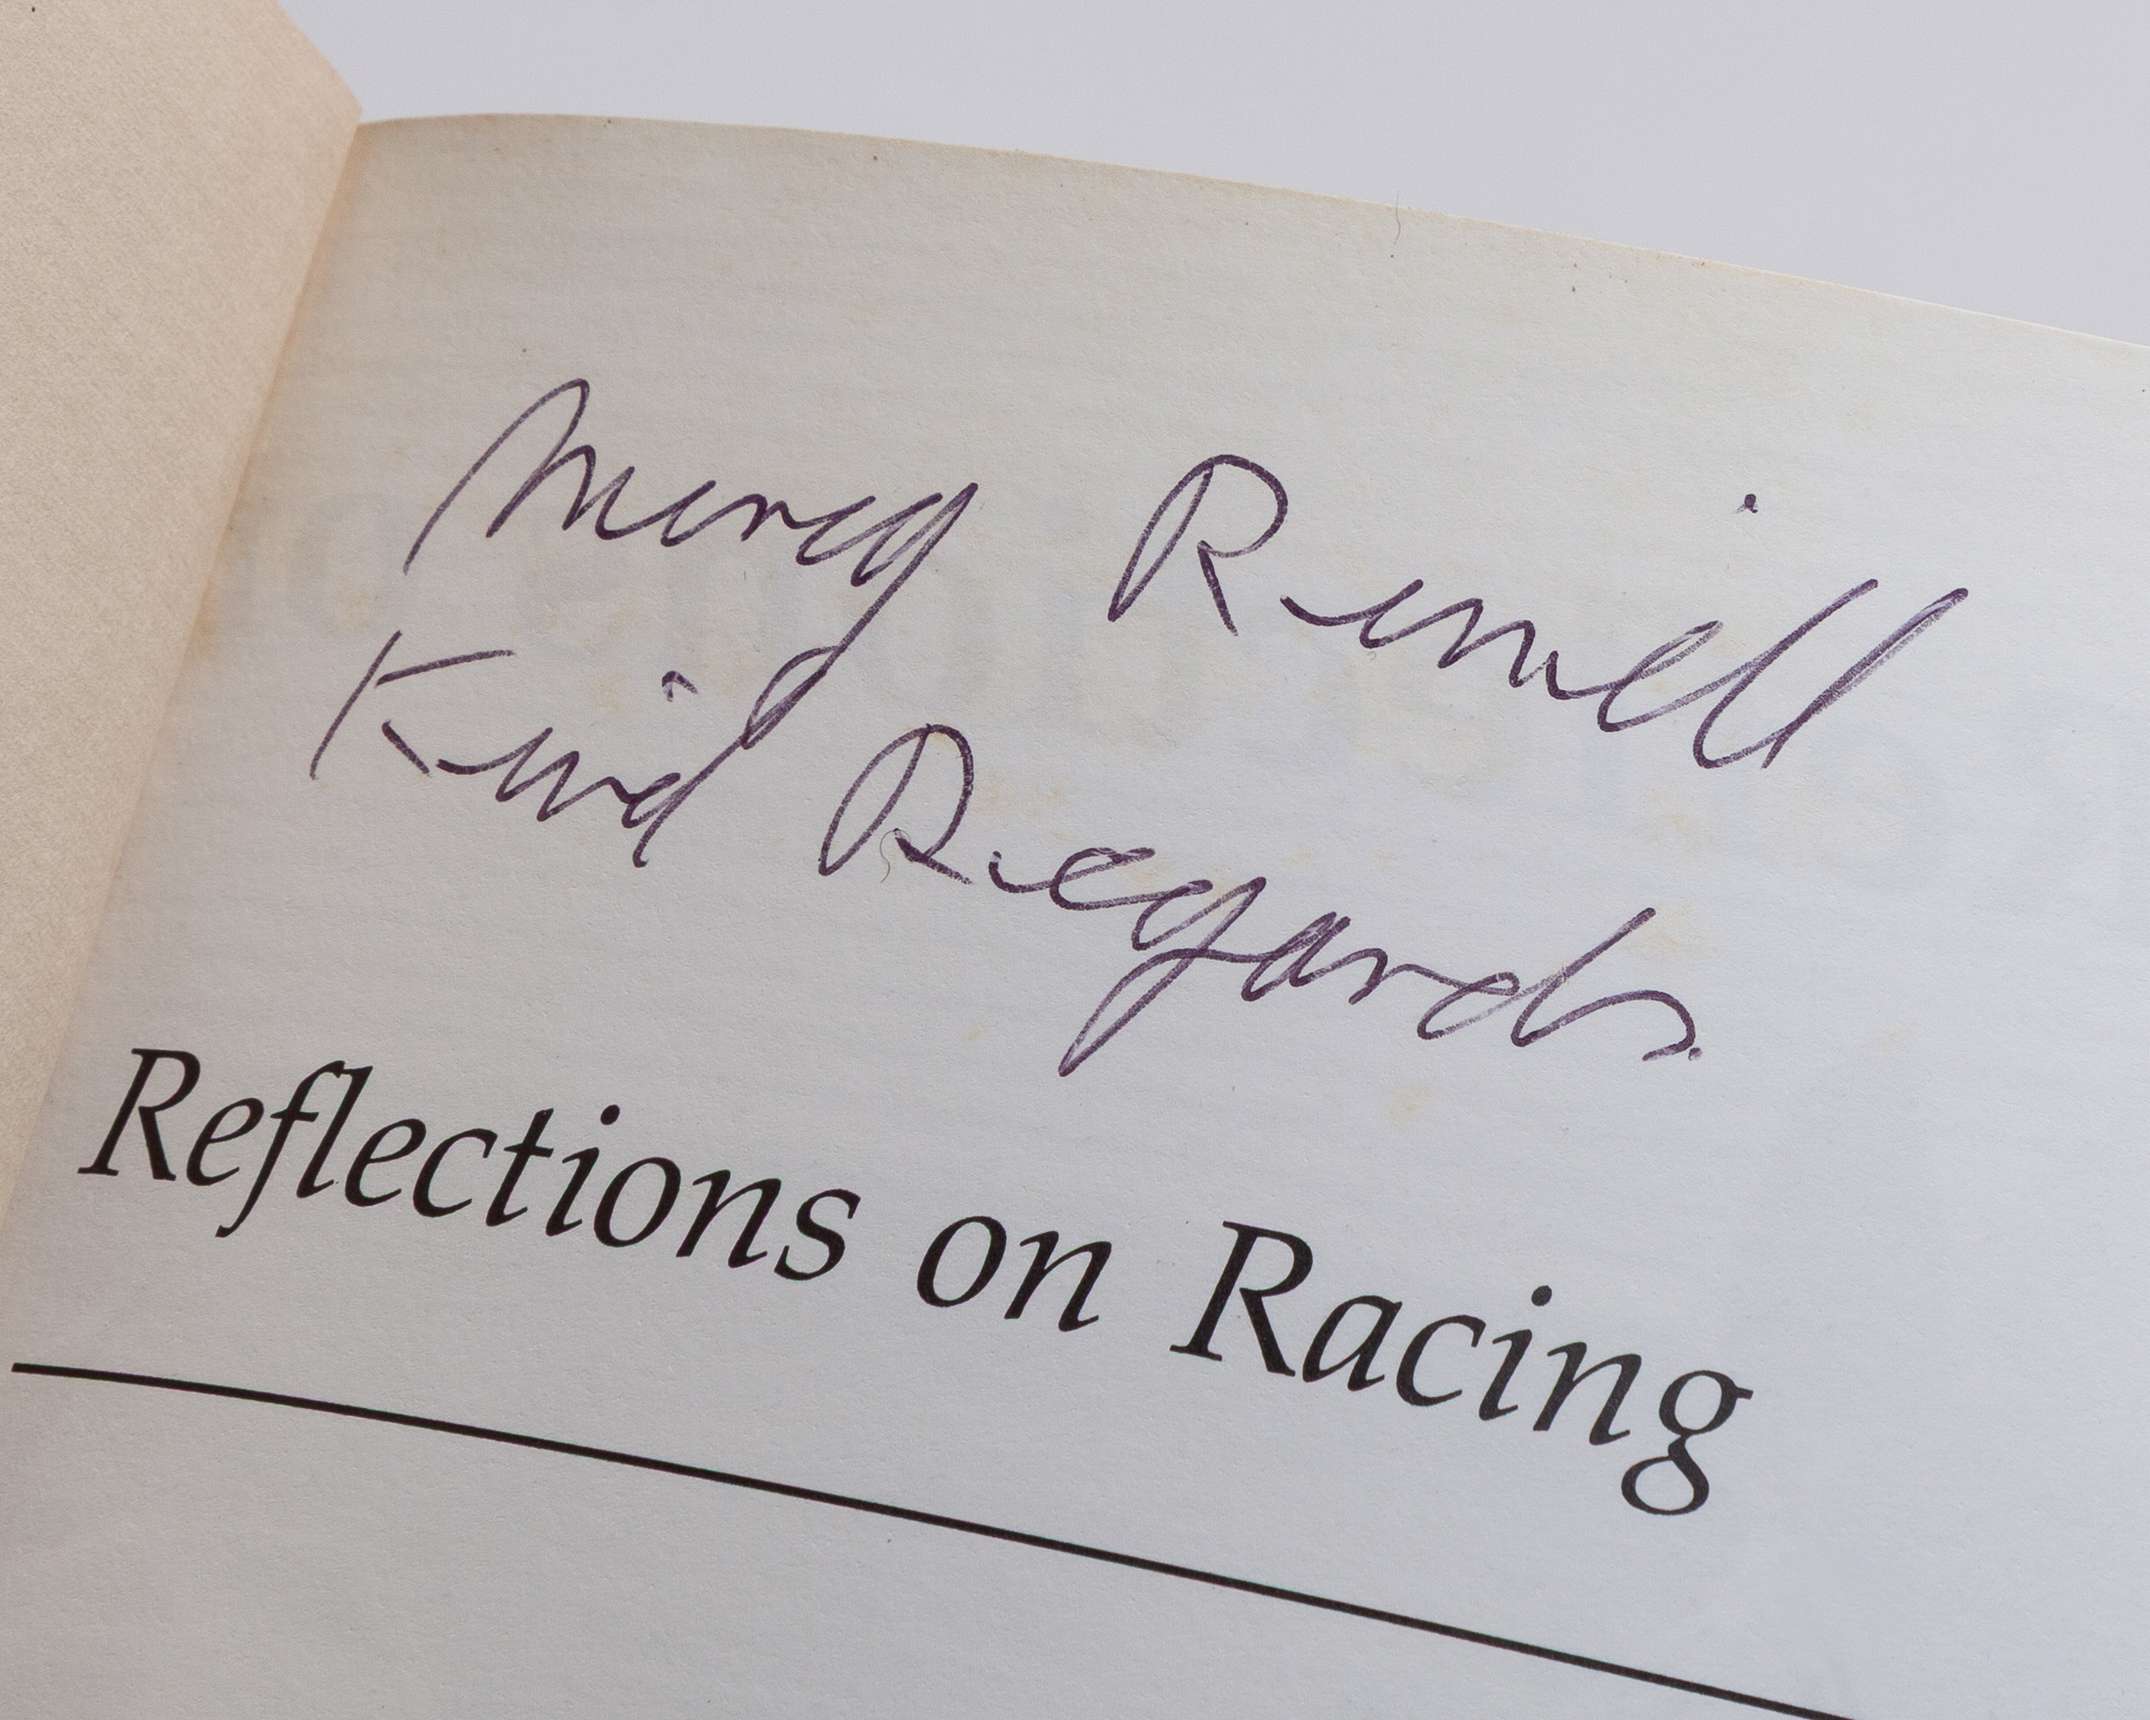 Mercy Rimell
Kind Regards
Reflections on Racing